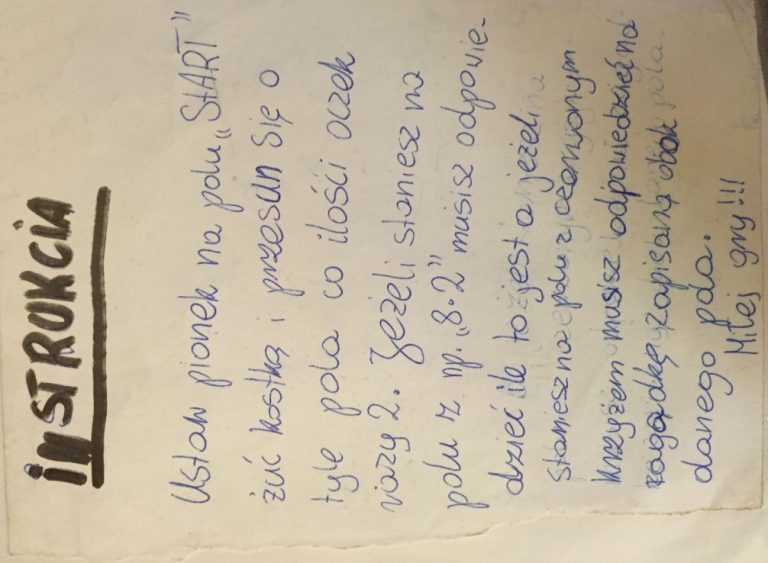 inSTRUKCIA
Ustaw pionek na polu „START"
żuć kostką i przesuń się o
tyle pola co ilości oczek
razy 2. Jeżeli staniesz na
polu z np. „8·2" musisz odpowie-
dzieć ile to jest a jeżeli
staniesz na polu z czerwonym
krzyżem musisz odpowiedzieć na
zagadkę zapisaną obok
danego pola.
Miłej gry!!!